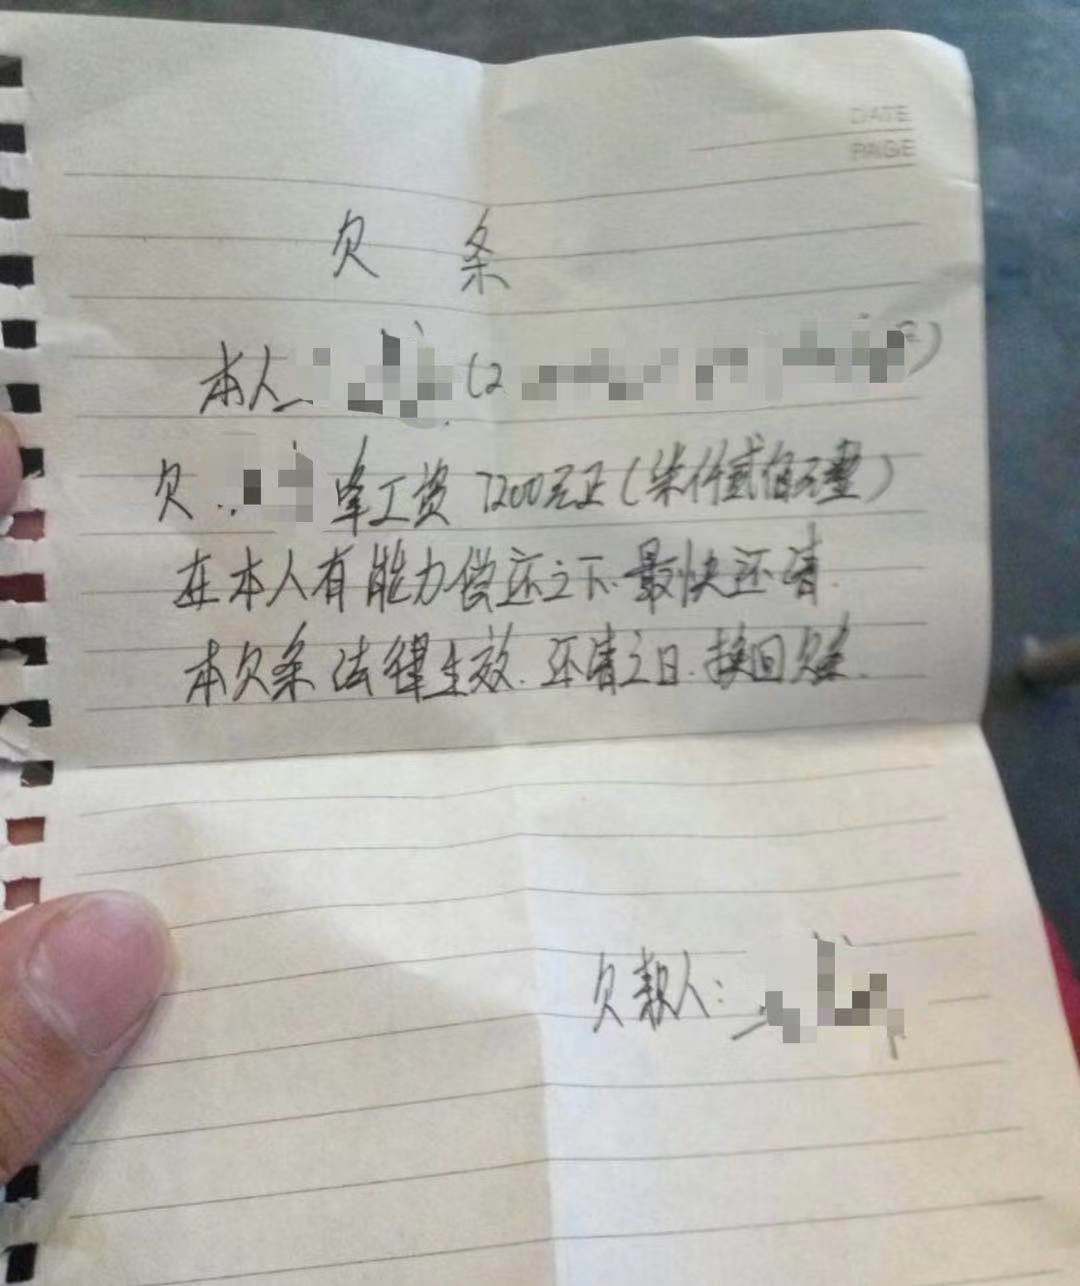 DATE
PAGE
欠 条
本人 (2 )
欠 峰工资 7200元正(柒仟贰佰元整)
在本人有能力偿还之下.最快还清.
本欠条法律生效.还清之日.换回欠条.
欠款人: